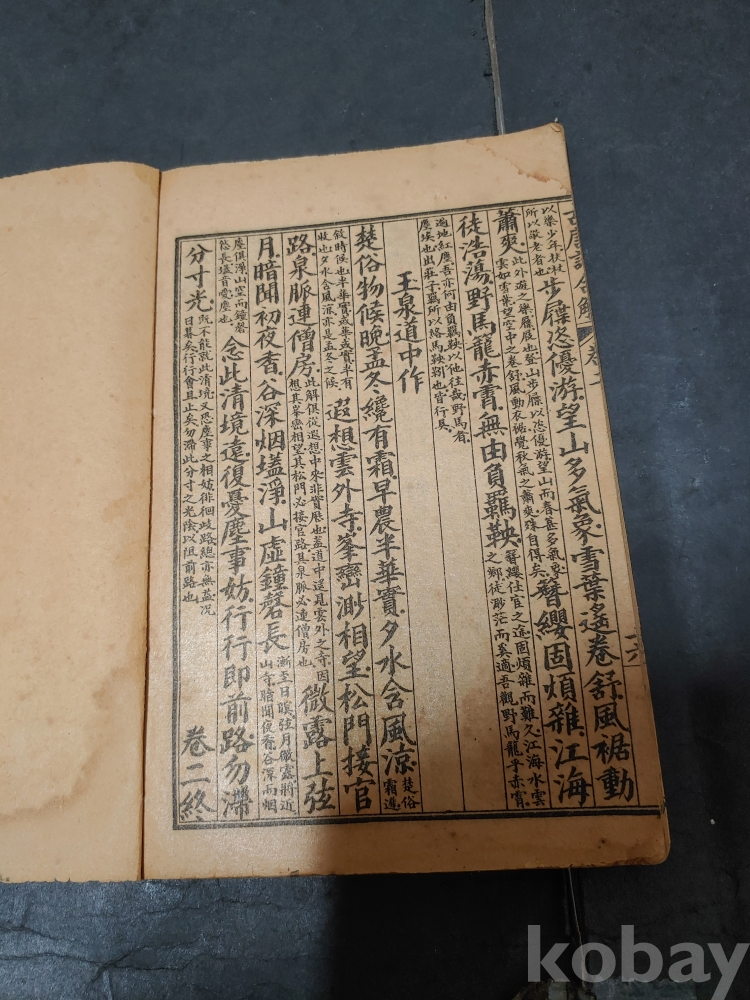 以樂少年扶杖
所以敬老者也
步屧恣優游望山多氣象雪葉遙卷舒風裾動
蕭爽
此外遊之樂屧履也登山步屧以恣優游望山而春甚多氣象
雲如雪葉望空中之卷舒風動衣裾覺秋氣之蕭爽殊自得矣
簪纓固煩雜江海
徒浩蕩野馬龍赤霄無由負羈鞅
簪纓仕宦之途固煩雜而難久江海水雲
之鄉徒渺茫而奚適吾觀野馬龍乎赤霄
遍地紅塵吾亦何由負羈鞅以他往哉野馬者
塵埃也出莊子羈所以絡馬鞅也皆行具
王泉道中作
楚俗物候晚孟冬纔有霜早農半華實夕水含風涼
楚俗
霜遲
敘時候也半華實或華或實半有
收也夕水含風涼亦是孟冬之候
遐想雲外寺峯巒渺相望松門接官
路泉脈連僧房
此解俱從遐想中來非實歷也蓋道中遠見雲外之寺因
想其峯密相望其松門必接官路其泉脈必連僧房也
微露上弦
月暗聞初夜香谷深烟壒淨山虛鐘磬長
漸至日暝弦月微露將近
山寺暗聞夜香谷深而烟
塵俱淨山空而鐘磬
悠長壒音愛塵也
念此清境遠復憂塵事妨行行即前路勿滯
分寸光
既不能就此清境又恐塵事之相妨徘徊歧路總亦無益况
日暮矣行行會且止矣勿滯此分寸之光陰以阻前路也
卷二終
kobay